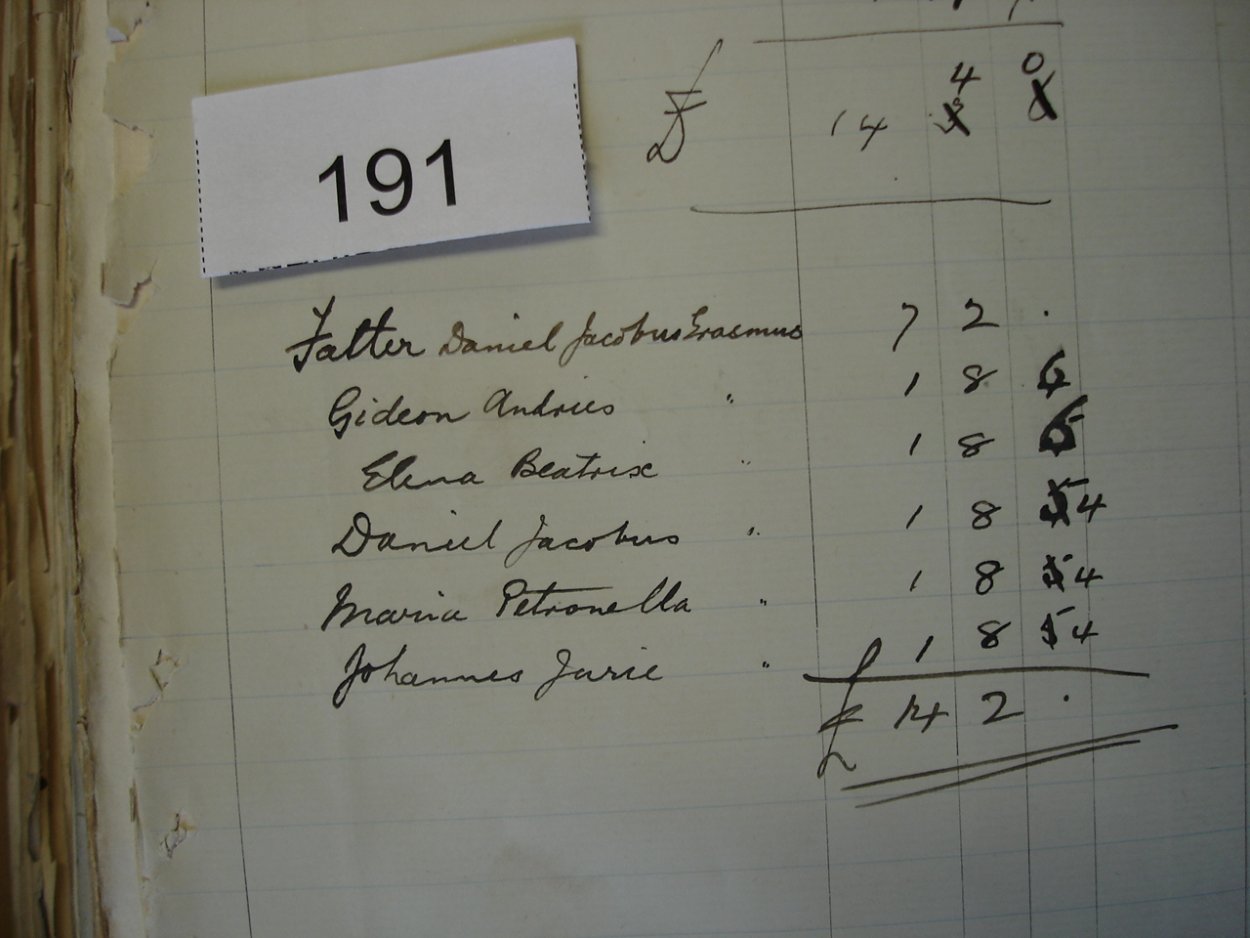 4 0
£ 14
191
Father Daniel Jacobus Erasmus 7 2 .
Gideon Andries " 1 8
Elena Beatrix " 1 8
Daniel Jacobus " 1 8 5 4
Maria Petronella " 1 8 5 4
Johannes Jurie " 1 8 5 4
£ 14 2 .